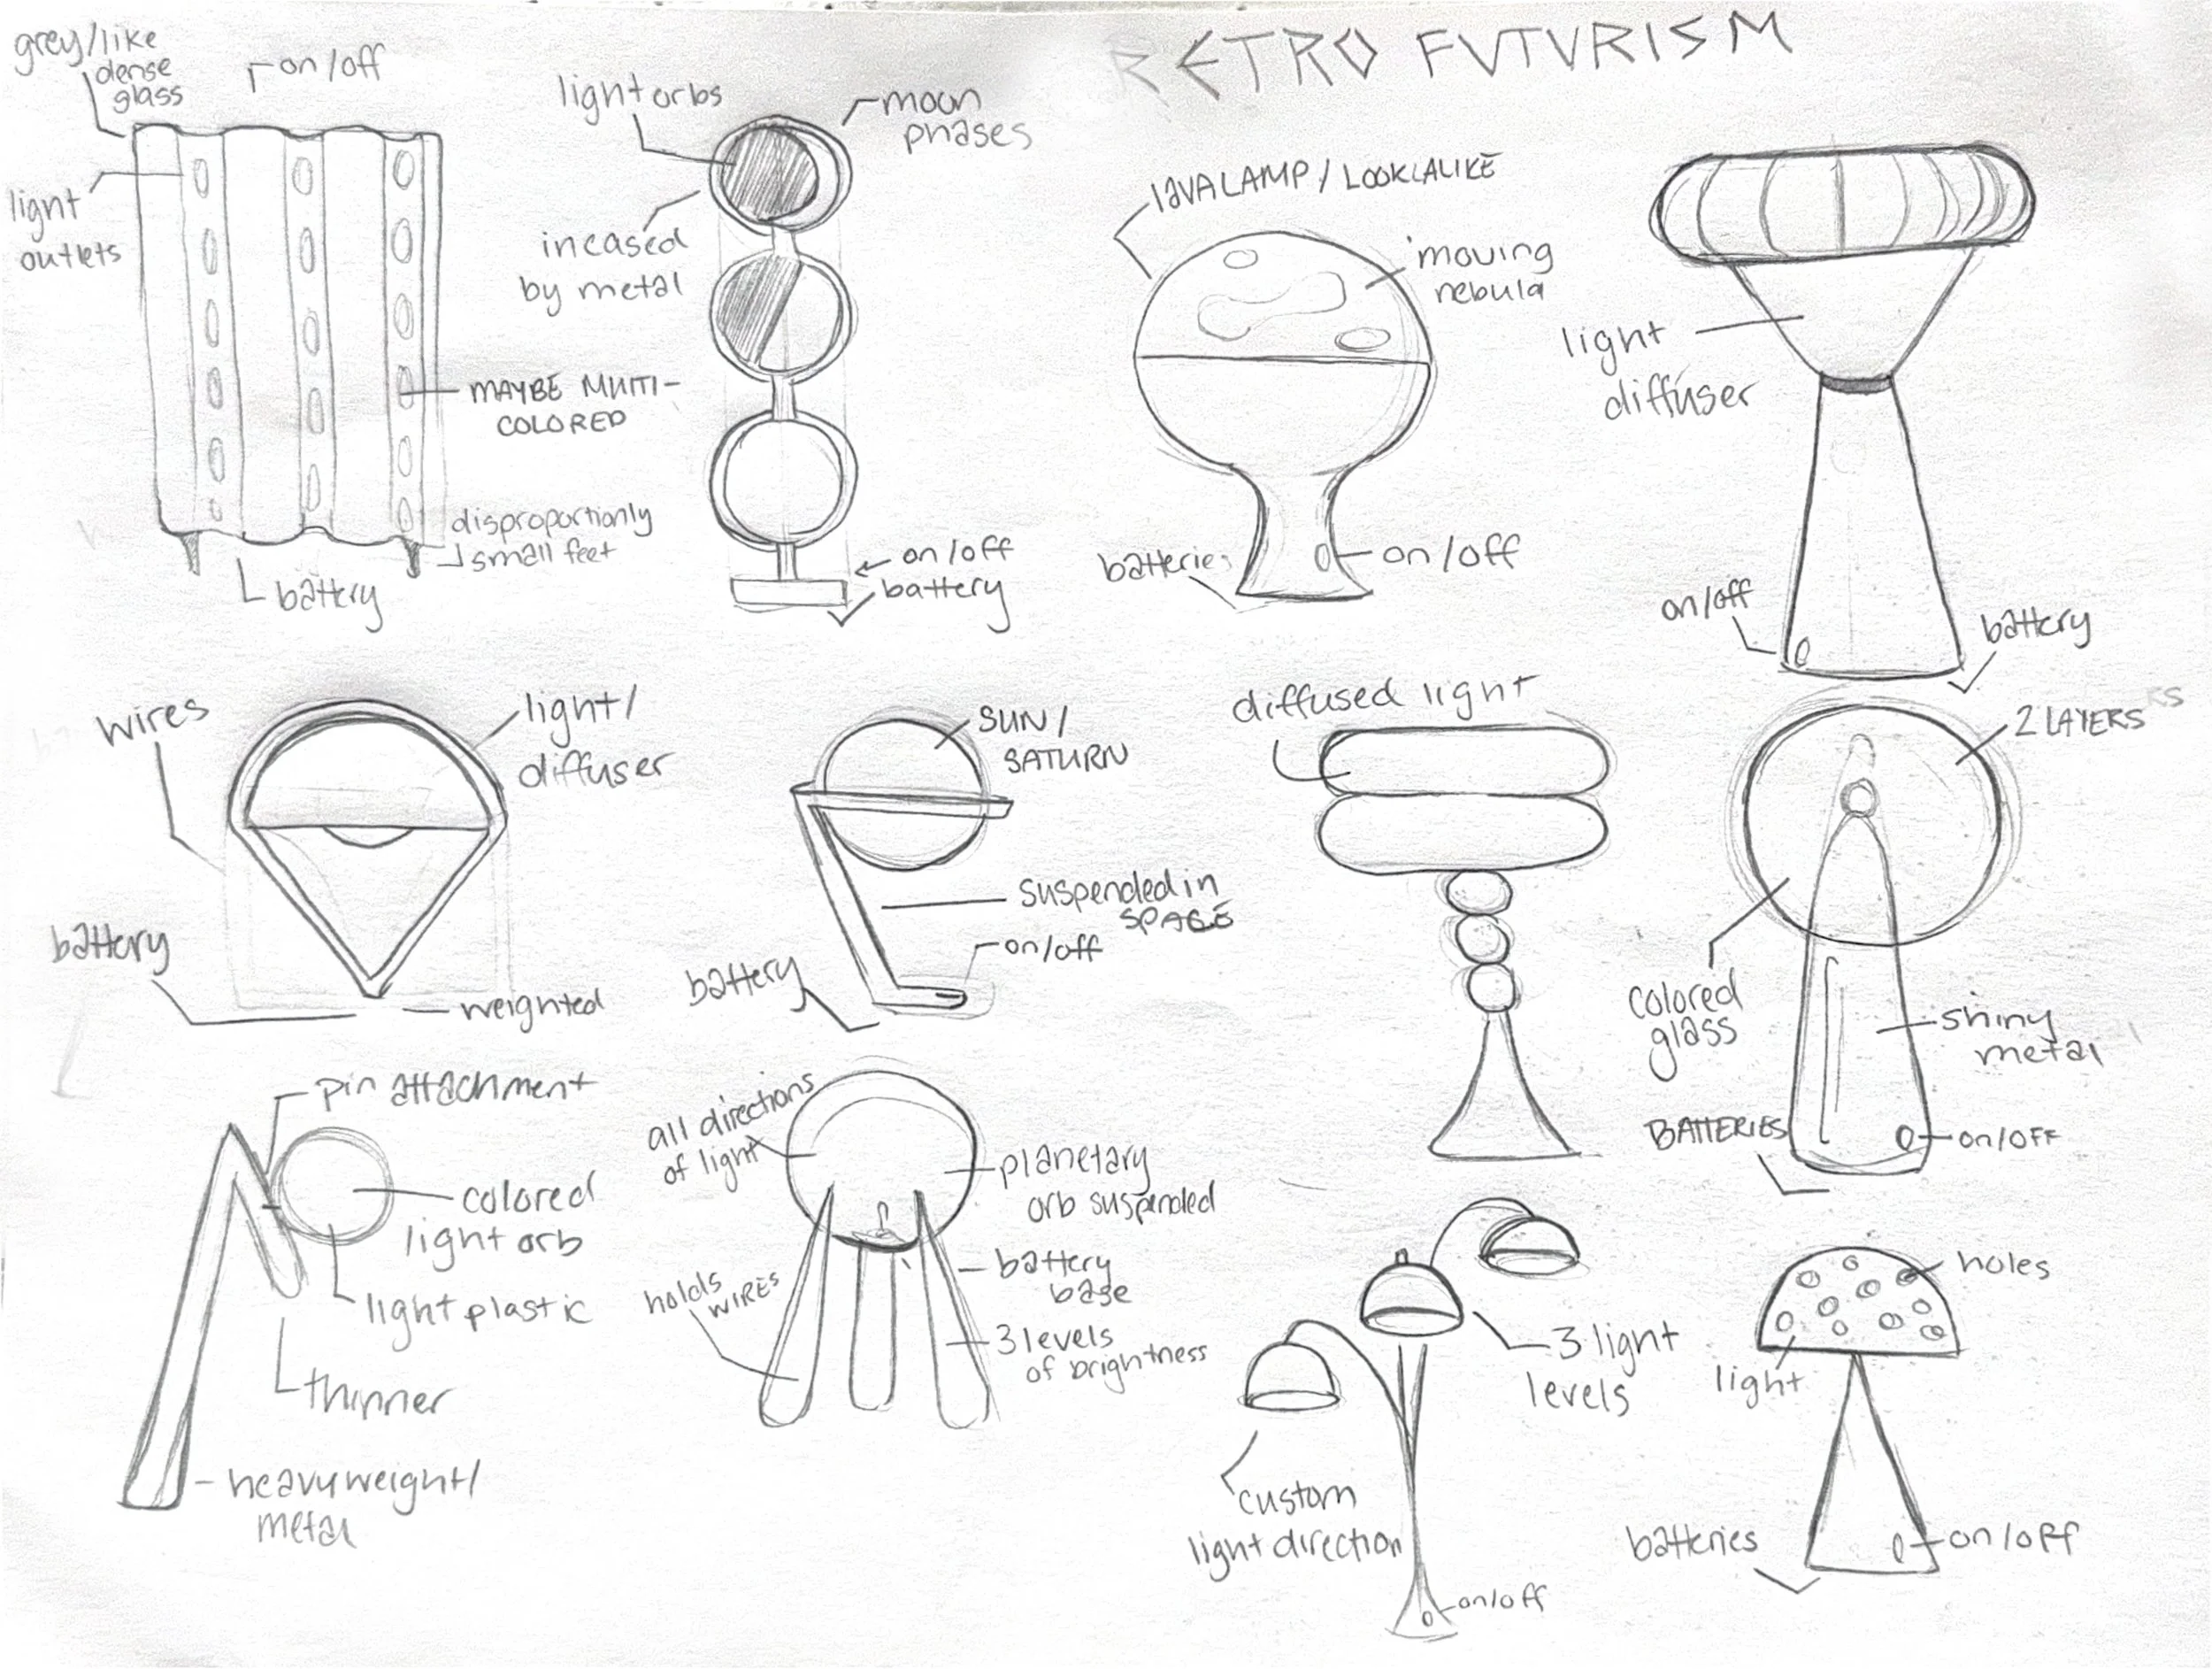 RETRO FUTURISM
grey/like
dense
glass
on/off
light
outlets
MAYBE MULTI-
COLORED
disproportionly
small feet
battery
light orbs
moon
phases
incased
by metal
on/off
battery
LAVA LAMP / LOOK ALIKE
moving
nebula
batteries
on/off
light
diffuser
on/off
battery
wires
light/
diffuser
battery
weighted
SUN/
SATURN
suspended in
SPACE
on/off
battery
diffused light
2 LAYERS
colored
glass
shiny
metal
BATTERIES
on/off
pin attachment
colored
light orb
light plastic
thinner
heavyweight/
metal
all directions
of light
planetary
orb suspended
battery
base
holds
WIRES
3 levels
of brightness
3 light
levels
custom
light direction
on/off
holes
light
batteries
on/off